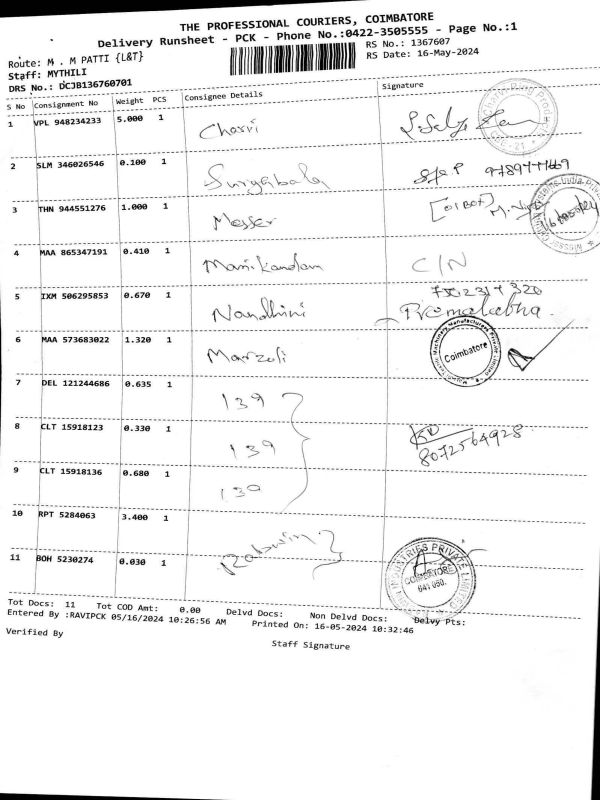 THE PROFESSIONAL COURIERS, COIMBATORE
Delivery Runsheet - PCK - Phone No.:0422-3505555 - Page No.:1
Route: M . M PATTI {L&T}
RS No.: 1367607
Staff: MYTHILI
RS Date: 16-May-2024
DRS No.: DCJB136760701
S No Consignment No Weight PCS Consignee Details Signature
1 VPL 948234233 5.000 1 Charvi
2 SLM 346026546 0.100 1 Suryabala
3 THN 944551276 1.000 1 Messer
4 MAA 865347191 0.410 1 Manikandam C/N
5 IXM 506295853 0.670 1 Nandhini
6 MAA 573683022 1.320 1 Marzoli Coimbatore
7 DEL 121244686 0.635 1 139
8 CLT 15918123 0.330 1 139 8072564928
9 CLT 15918136 0.680 1 139
10 RPT 5284063 3.400 1
11 BOH 5230274 0.030 1 INDUSTRIES PRIVATE LIMITED COIMBATORE 641 050.
Tot Docs: 11 Tot COD Amt: 0.00 Delvd Docs: Non Delvd Docs: Delvy Pts:
Entered By :RAVIPCK 05/16/2024 10:26:56 AM Printed On: 16-05-2024 10:32:46
Verified By
Staff Signature